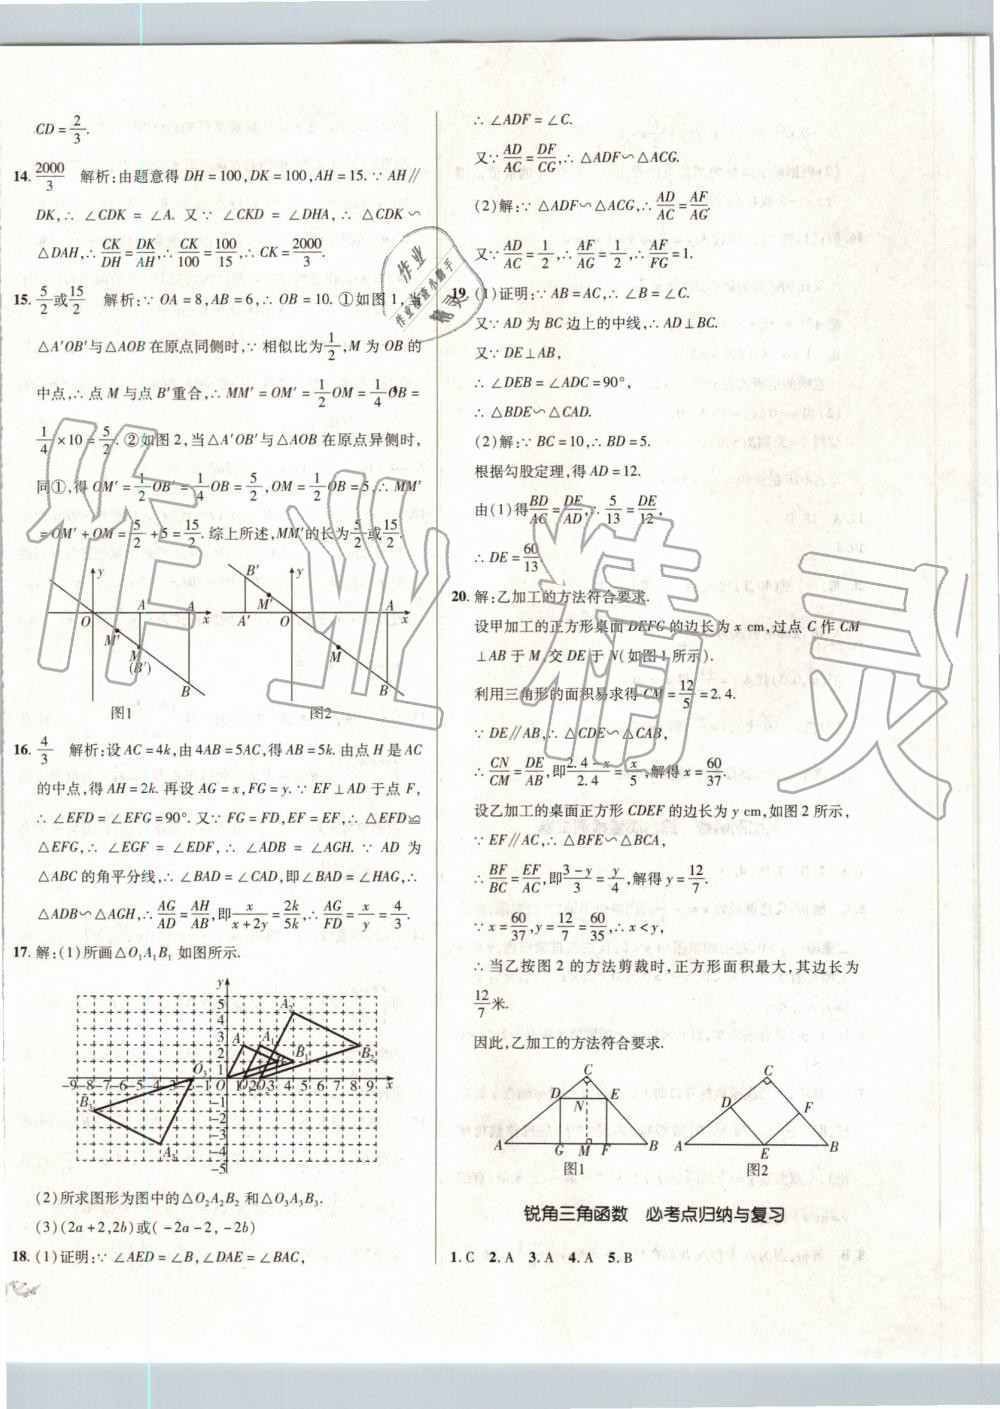 CD=2/3.
14. 2000/3 解析:由题意得 DH=100,DK=100,AH=15.∵AH∥
DK,∴∠CDK=∠A.又∵∠CKD=∠DHA,∴△CDK∽
△DAH,∴CK/DH=DK/AH,∴CK/100=100/15,∴CK=2000/3.
15. 5/2或15/2 解析:∵OA=8,AB=6,∴OB=10.①如图1,当
△A′OB′与△AOB在原点同侧时,∵相似比为1/2,M为OB的
中点,∴点M与点B′重合,∴MM′=OM′=1/2OM=1/4OB=
1/4×10=5/2.②如图2,当△A′OB′与△AOB在原点异侧时,
同①,得OM′=1/2OB′=1/4OB=5/2,OM=1/2OB=5,∴MM′
=OM′+OM=5/2+5=15/2.综上所述,MM′的长为5/2或15/2.
y O A A x M′ M (B′) B
图1
B′ y M′ A′ O A x M B
图2
16. 4/3 解析:设AC=4k,由4AB=5AC,得AB=5k.由点H是AC
的中点,得AH=2k.再设AG=x,FG=y.∵EF⊥AD于点F,
∴∠EFD=∠EFG=90°.又∵FG=FD,EF=EF,∴△EFD≌
△EFG,∴∠EGF=∠EDF,∴∠ADB=∠AGH.∵AD为
△ABC的角平分线,∴∠BAD=∠CAD,即∠BAD=∠HAG,∴
△ADB∽△AGH,∴AG/AD=AH/AB,即x/(x+2y)=2k/5k,∴AG/FD=x/y=4/3.
17.解:(1)所画△O₁A₁B₁如图所示.
(2)所求图形为图中的△O₂A₂B₂和△O₃A₃B₃.
(3)(2a+2,2b)或(-2a-2,-2b)
18.(1)证明:∵∠AED=∠B,∠DAE=∠BAC,
∴∠ADF=∠C.
又∵AD/AC=DF/CG,∴△ADF∽△ACG.
(2)解:∵△ADF∽△ACG,∴AD/AC=AF/AG.
又∵AD/AC=1/2,∴AF/AG=1/2,∴AF/FG=1.
19.(1)证明:∵AB=AC,∴∠B=∠C.
又∵AD为BC边上的中线,∴AD⊥BC.
又∵DE⊥AB,
∴∠DEB=∠ADC=90°,
∴△BDE∽△CAD.
(2)解:∵BC=10,∴BD=5.
根据勾股定理,得AD=12.
由(1)得BD/AC=DE/AD,∴5/13=DE/12,
∴DE=60/13
20.解:乙加工的方法符合要求.
设甲加工的正方形桌面DEFG的边长为x cm,过点C作CM
⊥AB于M,交DE于N(如图1所示).
利用三角形的面积易求得CM=12/5=2.4.
∵DE∥AB,∴△CDE∽△CAB,
∴CN/CM=DE/AB,即(2.4-x)/2.4=x/5,解得x=60/37.
设乙加工的桌面正方形CDEF的边长为y cm,如图2所示,
∵EF∥AC,∴△BFE∽△BCA,
∴BF/BC=EF/AC,即(3-y)/3=y/4,解得y=12/7.
∵x=60/37,y=12/7=60/35,∴x<y,
∴当乙按图2的方法剪裁时,正方形面积最大,其边长为
12/7米.
因此,乙加工的方法符合要求.
C D E N A G M F B
图1
C D F A E B
图2
锐角三角函数 必考点归纳与复习
1.C 2.A 3.A 4.A 5.B
作业精灵
作业
作业检查小助手
精灵